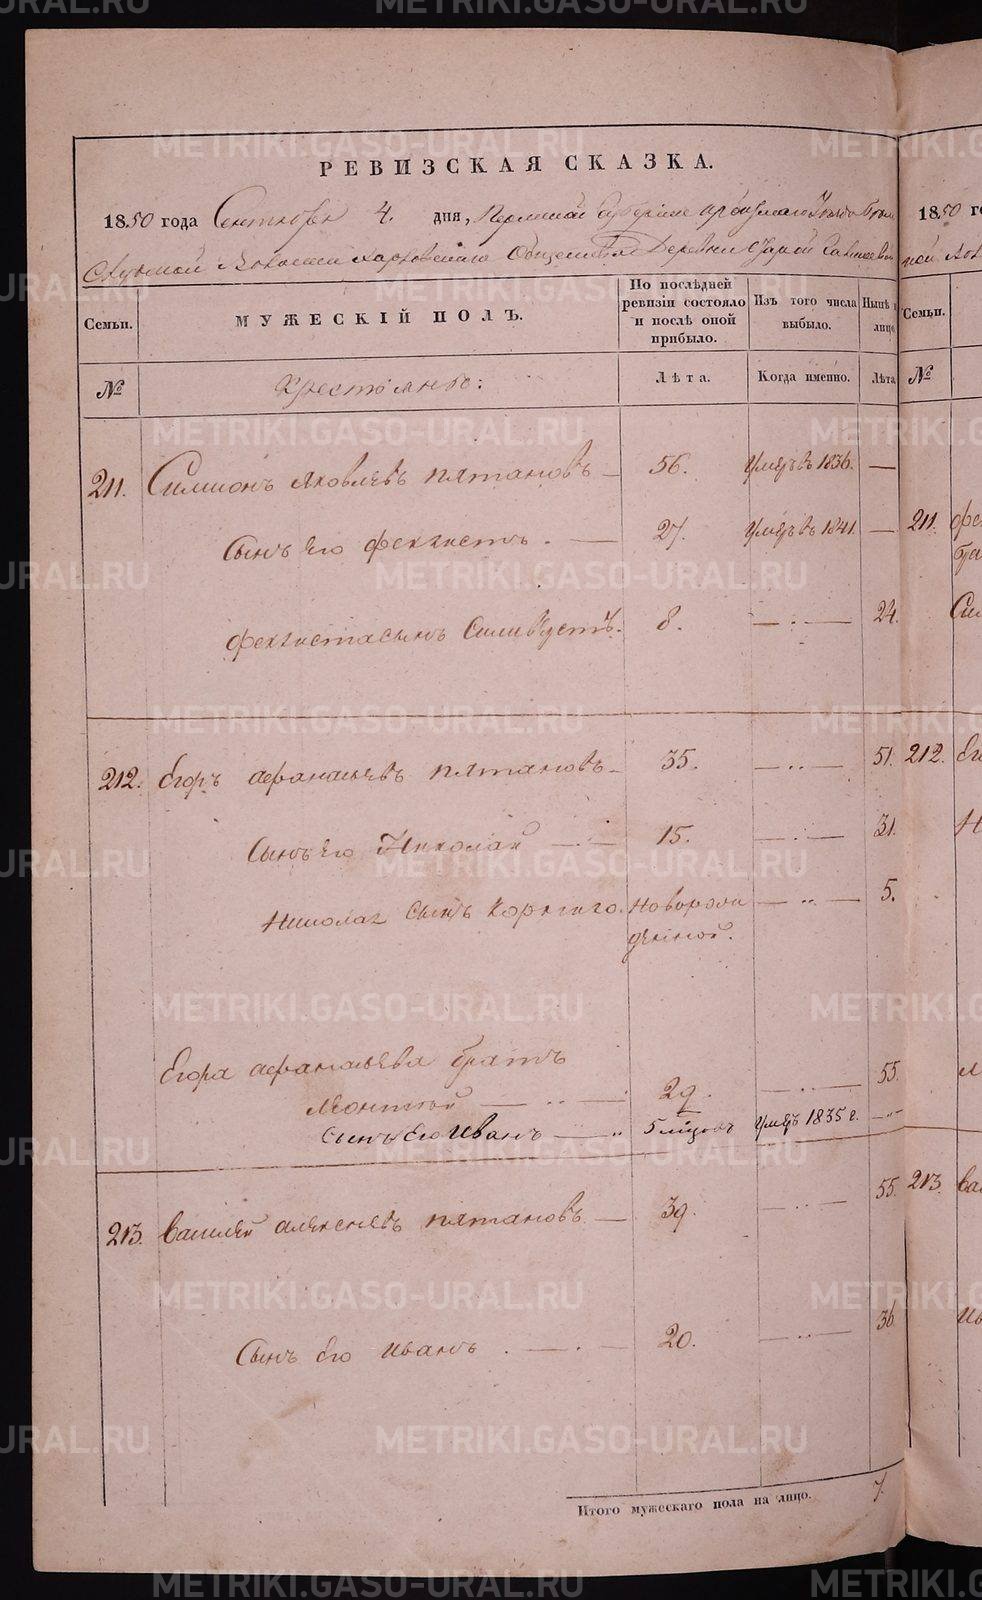 METRIKI.GASO-URAL.RU
РЕВИЗСКАЯ СКАЗКА.
1850 года Сентября 4. дня, Пермской Губернии Ирбитскаго Уезда
Волости Харловскаго Общества Деревни
Семьи. МУЖЕСКІЙ ПОЛЪ. По послѣдней ревизіи состояло и послѣ оной прибыло. Изъ того числа выбыло. Нынѣ лицо
№ Крестьяне: Лѣта. Когда именно. Лѣта
211. Симионъ Яковлевъ Пятановъ 56. Умеръ въ 1836. —
Сынъ Его Феклистъ. — 27. Умеръ въ 1841. —
Феклиста сынъ Силивѣстъ. 8. — 24.
212. Егоръ Афанасьевъ Пятановъ 35. — 51.
Сынъ Его Николай — 15. — 31.
Николая Сынъ Корнило. Новорож — 5.
денной.
Егора Афанасьева братъ
Леонтей — 29. — 55.
Сынъ Его Иванъ — 5 мѣсяцовъ Умеръ 1835 г. —
213. Василей Алексеевъ Пятановъ. — 39. — 55.
Сынъ Его Иванъ. — 20. — 36.
Итого мужескаго пола на лицо. 7.
1850 г
Семьи.
№
211.
212.
213.